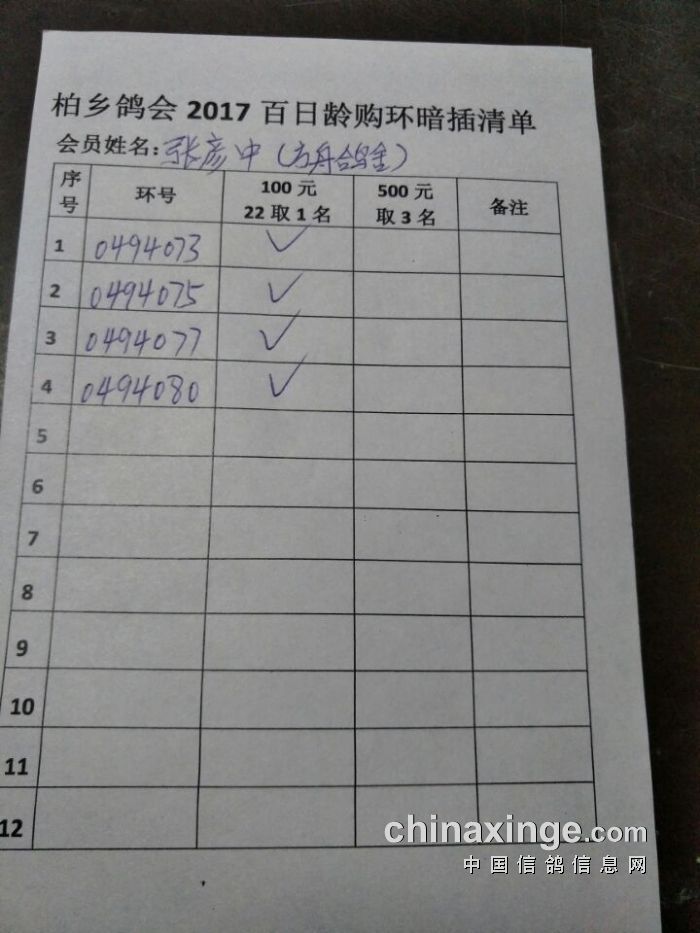 柏乡鸽会 2017 百日龄购环暗插清单
会员姓名: 张彦中（方舟鸽舍）
序号 环号 100 元 22 取 1 名 500 元 取 3 名 备注
1 0494073 ✓
2 0494075 ✓
3 0494077 ✓
4 0494080 ✓
5
6
7
8
9
10
11
12
chinaxinge.com
中国信鸽信息网